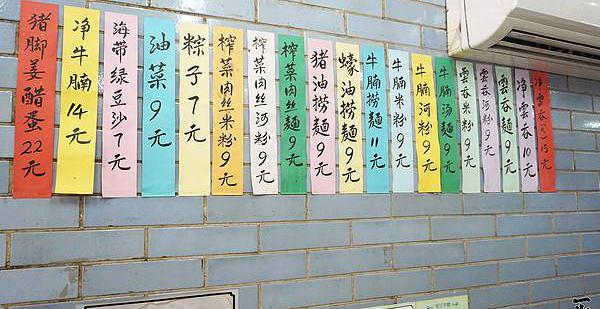 猪脚姜醋蛋22元
净牛腩14元
海带绿豆沙7元
油菜9元
粽子7元
榨菜肉丝米粉9元
榨菜肉丝河粉9元
榨菜肉丝麵9元
猪油捞麵9元
蠔油捞麵9元
牛腩捞麵11元
牛腩米粉9元
牛腩河粉9元
牛腩汤麵9元
雲吞米粉9元
雲吞河粉9元
雲吞麵9元
净雲吞10元
15元